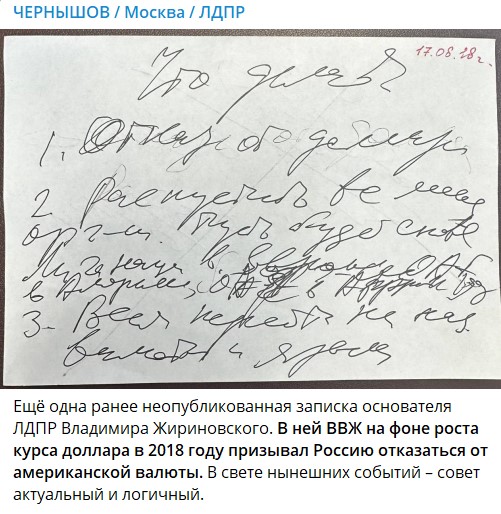 ЧЕРНЫШОВ / Москва / ЛДПР
17.08.18 г.
Что делать?
1. Отказ от доллара
2. Распустить все меж
орг-ии. Пусть будет своя
в Америке, в Африке
3. Всем перейти на нац.
валюты и языки
Ещё одна ранее неопубликованная записка основателя
ЛДПР Владимира Жириновского. В ней ВВЖ на фоне роста
курса доллара в 2018 году призывал Россию отказаться от
американской валюты. В свете нынешних событий – совет
актуальный и логичный.